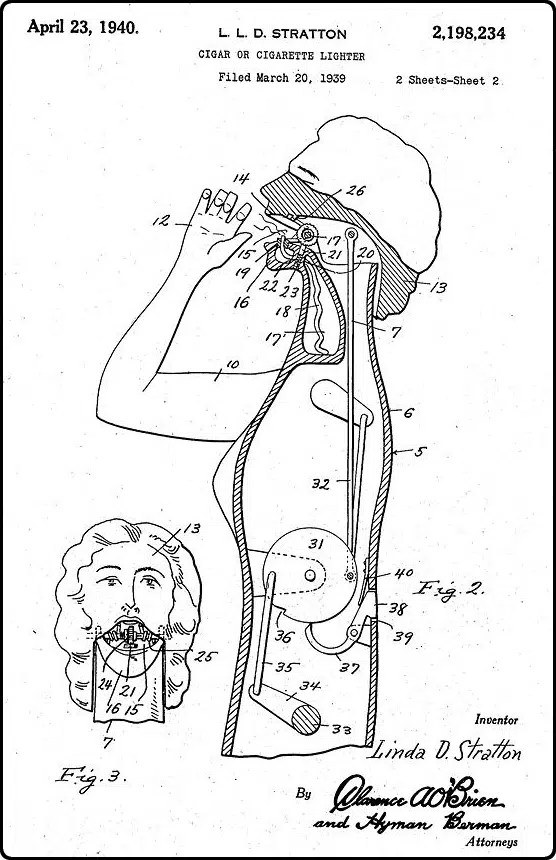 April 23, 1940.
L. L. D. STRATTON
2,198,234
CIGAR OR CIGARETTE LIGHTER
Filed March 20, 1939
2 Sheets-Sheet 2
14
26
12
15
17
21
20
19
16
22
23
13
18
7
17'
10
6
5
32
13
31
40
Fig. 2.
38
36
39
37
25
35
24
21
34
16
15
7
33
Fig. 3.
Inventor
Linda D. Stratton
By Clarence A. O'Brien
and Hyman Berman
Attorneys